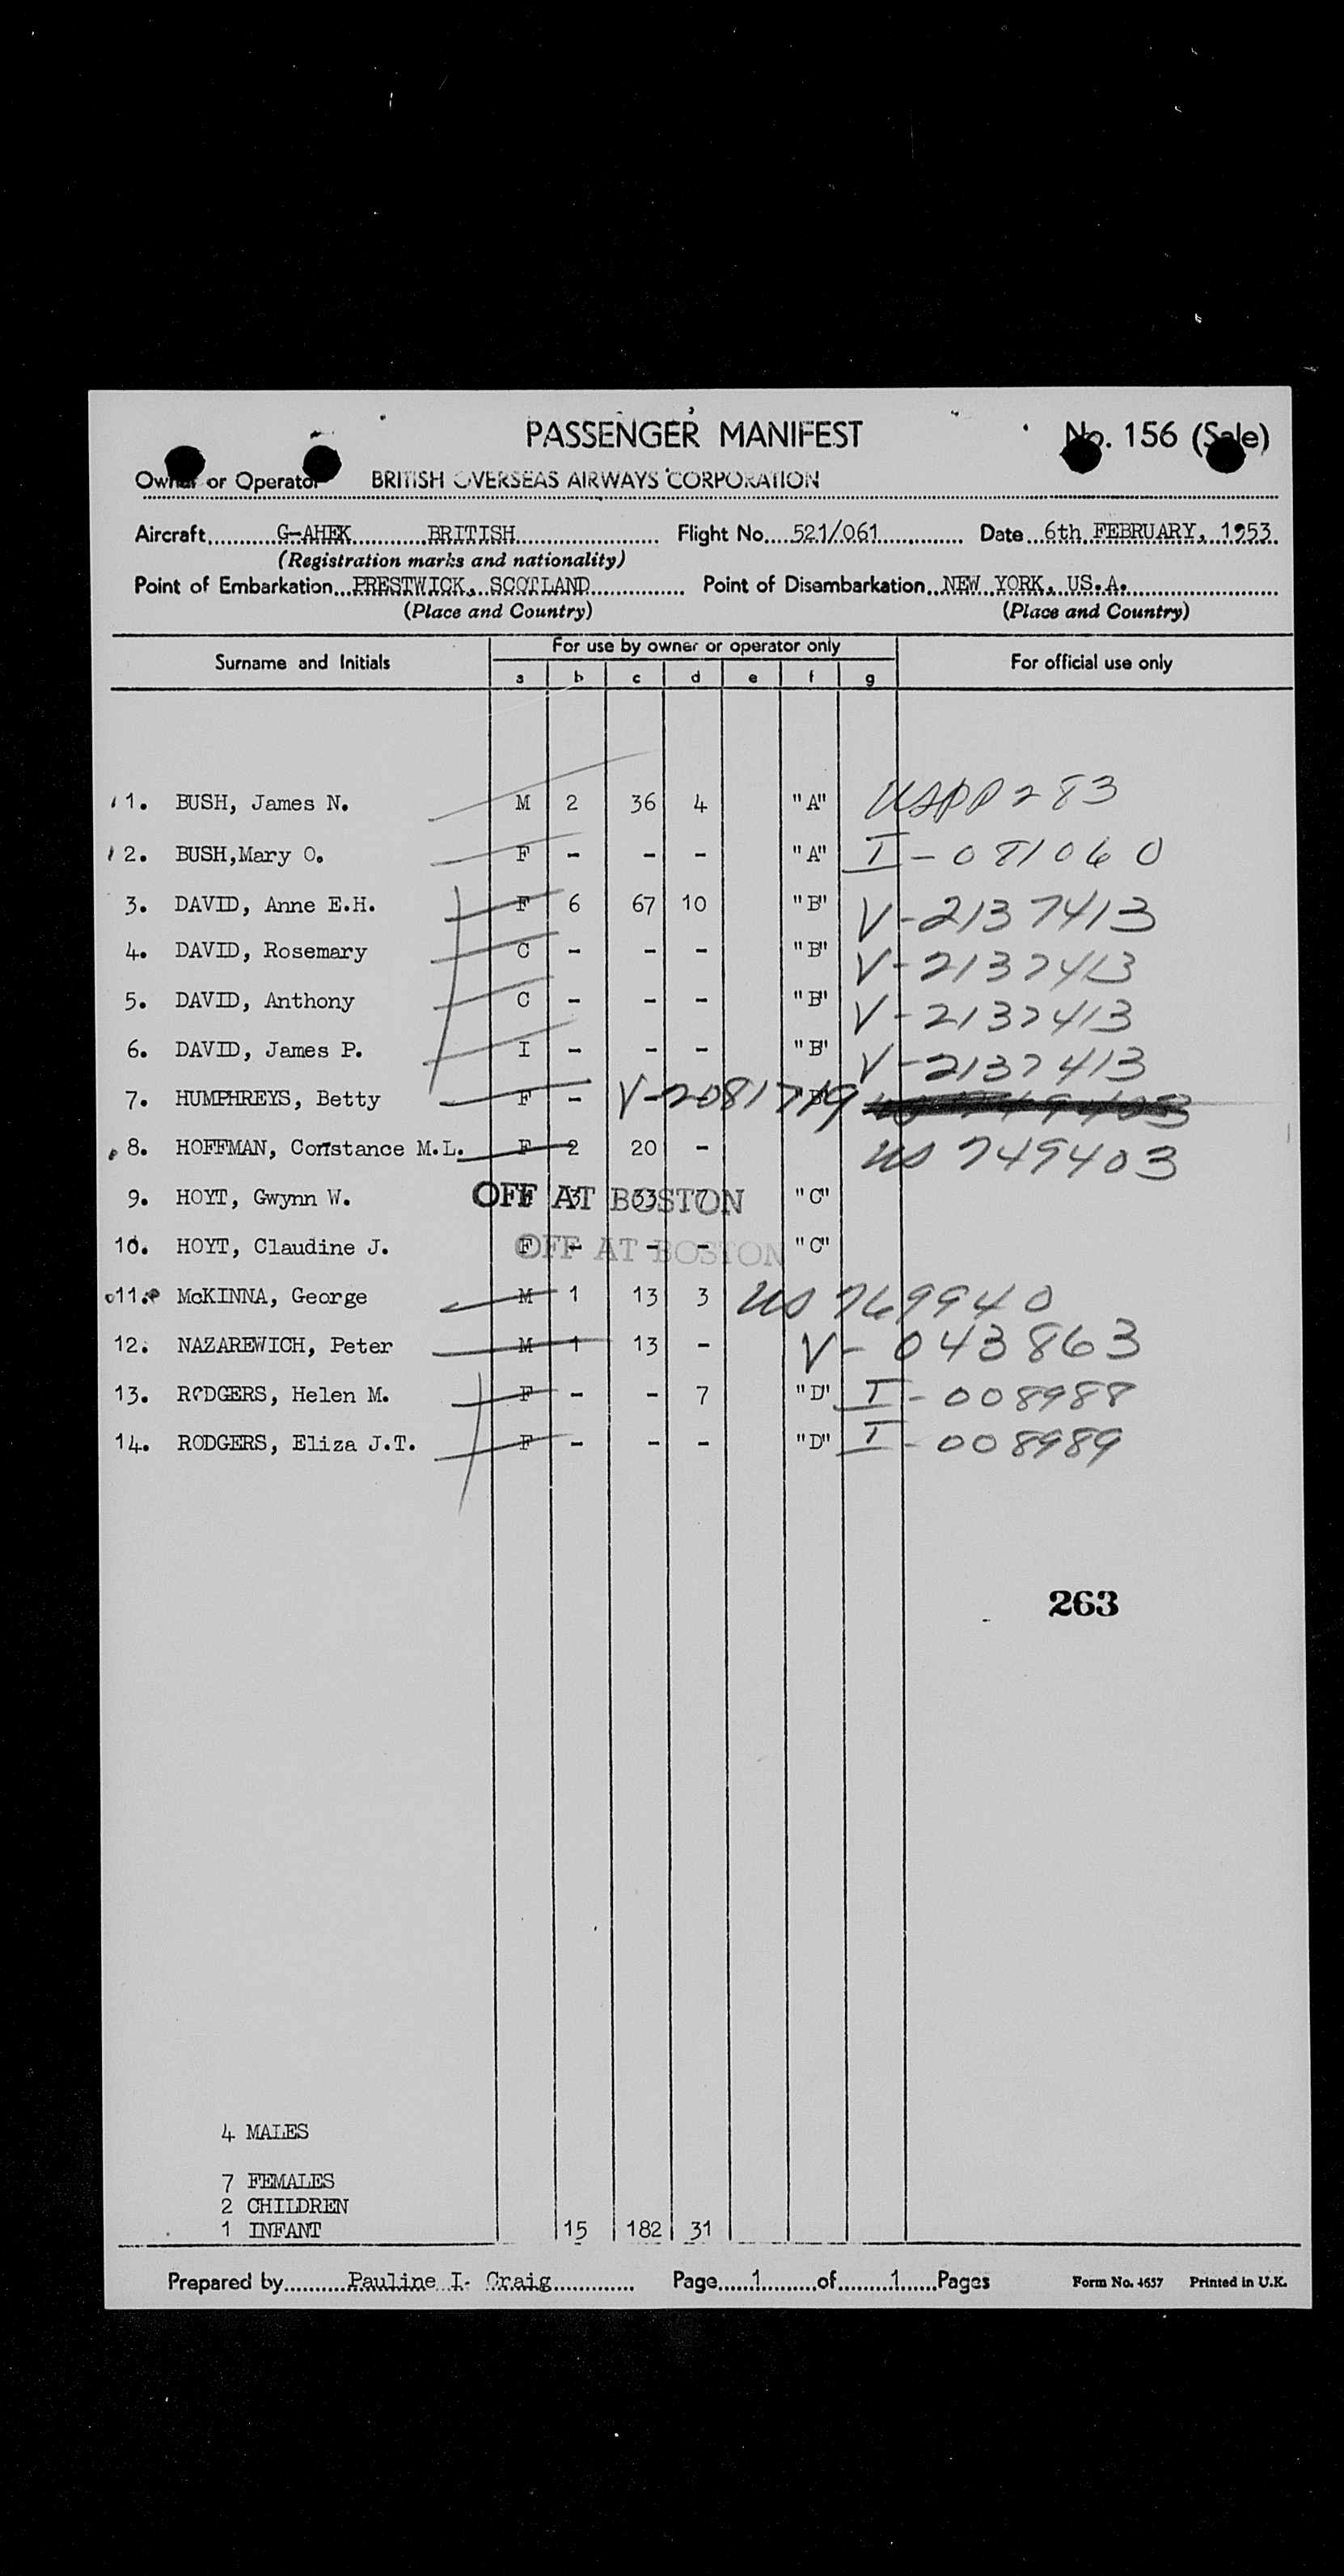 PASSENGER MANIFEST No. 156 (Sale)
Owner or Operator BRITISH OVERSEAS AIRWAYS CORPORATION
Aircraft G-AHEK BRITISH Flight No. 521/061 Date 6th FEBRUARY, 1953.
(Registration marks and nationality)
Point of Embarkation PRESTWICK, SCOTLAND Point of Disembarkation NEW YORK, US.A.
(Place and Country) (Place and Country)
Surname and Initials For use by owner or operator only For official use only
a b c d e f g
1. BUSH, James N. M 2 36 4 "A" USPP 283
2. BUSH,Mary O. F - - - "A" I-081060
3. DAVID, Anne E.H. F 6 67 10 "B" V-2137413
4. DAVID, Rosemary C - - - "B" V-2137413
5. DAVID, Anthony C - - - "B" V-2137413
6. DAVID, James P. I - - - "B" V-2137413
7. HUMPHREYS, Betty F - V-2081719
8. HOFFMAN, Constance M.L. F 2 20 - US 749403
9. HOYT, Gwynn W. OFF AT BOSTON 3 33 7 "C"
10. HOYT, Claudine J. F - - - OFF AT BOSTON "C"
11. McKINNA, George M 1 13 3 US 769940
12. NAZAREWICH, Peter M 1 13 - V-043863
13. RODGERS, Helen M. F - - 7 "D" I-008988
14. RODGERS, Eliza J.T. F - - - "D" I-008989
263
4 MALES
7 FEMALES
2 CHILDREN
1 INFANT 15 182 31
Prepared by Pauline I. Craig Page 1 of 1 Pages Form No. 4637 Printed in U.K.